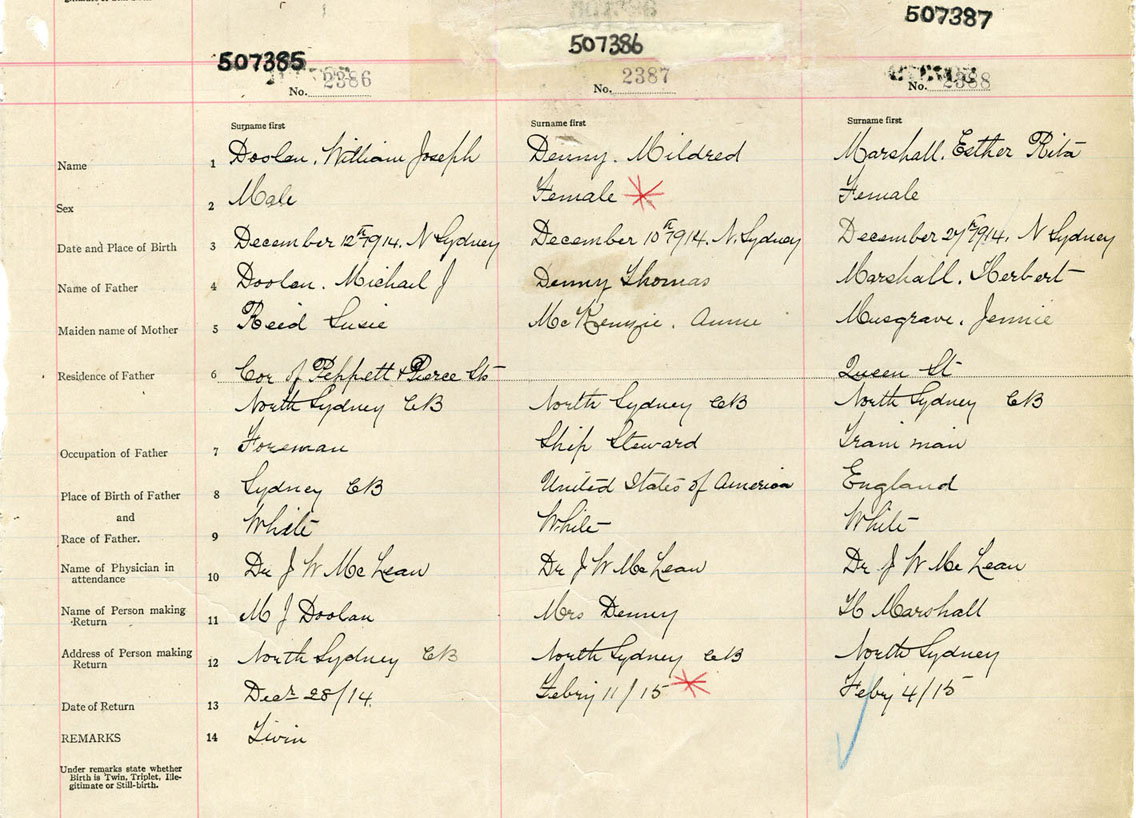 gitimate or Still-birth.
507385 507386 507387
No. 2386 No. 2387 No. 2388
Surname first Surname first Surname first
Name 1 Doolan, William Joseph Denny. Mildred Marshall. Esther Rita
Sex 2 Male Female Female
Date and Place of Birth 3 December 12th 1914. N Sydney December 10th 1914. N. Sydney December 27th 1914. N Sydney
Name of Father 4 Doolan. Michael J Denny Thomas Marshall. Herbert
Maiden name of Mother 5 Reid Susie McKenzie. Annie Musgrave. Jennie
Residence of Father 6 Cor of Peppett & Pierce Sts Queen St
North Sydney CB North Sydney CB North Sydney CB
Occupation of Father 7 Foreman Ship Steward Train man
Place of Birth of Father 8 Sydney CB United States of America England
and
Race of Father. 9 White White White
Name of Physician in attendance 10 Dr J W McLean Dr J W McLean Dr J W McLean
Name of Person making Return 11 M J Doolan Mrs Denny H Marshall
Address of Person making Return 12 North Sydney CB North Sydney CB North Sydney
Date of Return 13 Decr 28/14. Febry 11/15 Febry 4/15
REMARKS 14
Under remarks state whether
Birth is Twin, Triplet, Ille-
gitimate or Still-birth.